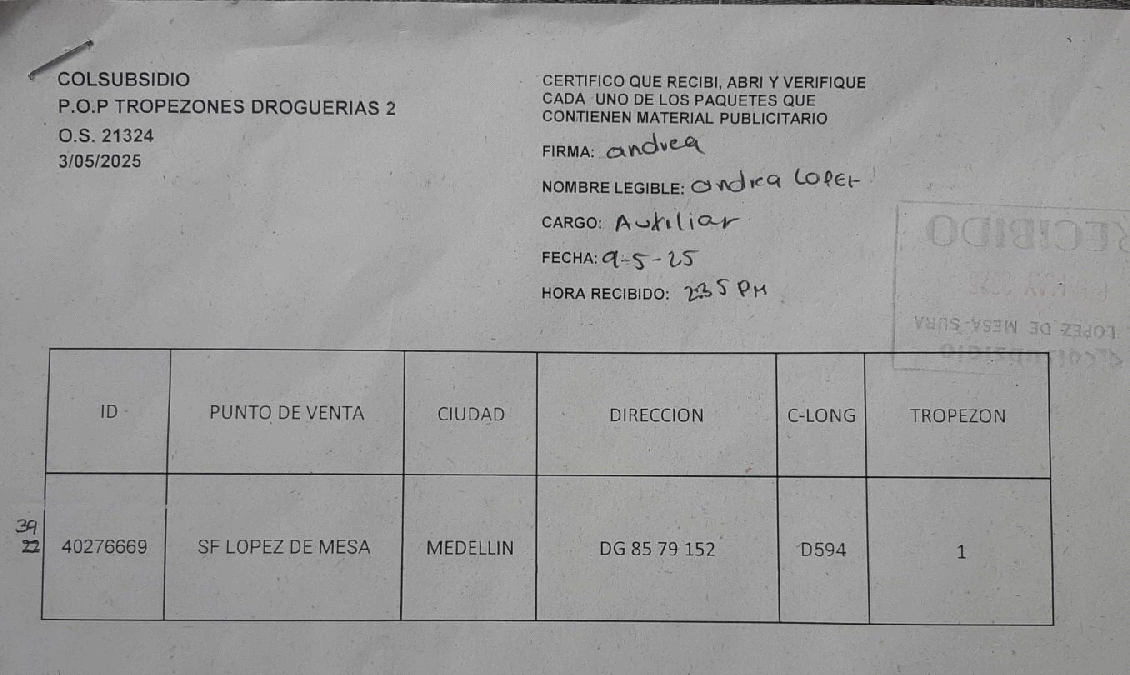 COLSUBSIDIO
P.O.P TROPEZONES DROGUERIAS 2
O.S. 21324
3/05/2025
CERTIFICO QUE RECIBI, ABRI Y VERIFIQUE
CADA UNO DE LOS PAQUETES QUE
CONTIENEN MATERIAL PUBLICITARIO
FIRMA: andrea
NOMBRE LEGIBLE: andrea LOPEZ
CARGO: Auxiliar
FECHA: 9-5-25
HORA RECIBIDO: 2:35 PM
RECIBIDO
LOPEZ DE MESA-SURA
ID PUNTO DE VENTA CIUDAD DIRECCION C-LONG TROPEZON
39
22 40276669 SF LOPEZ DE MESA MEDELLIN DG 85 79 152 D594 1